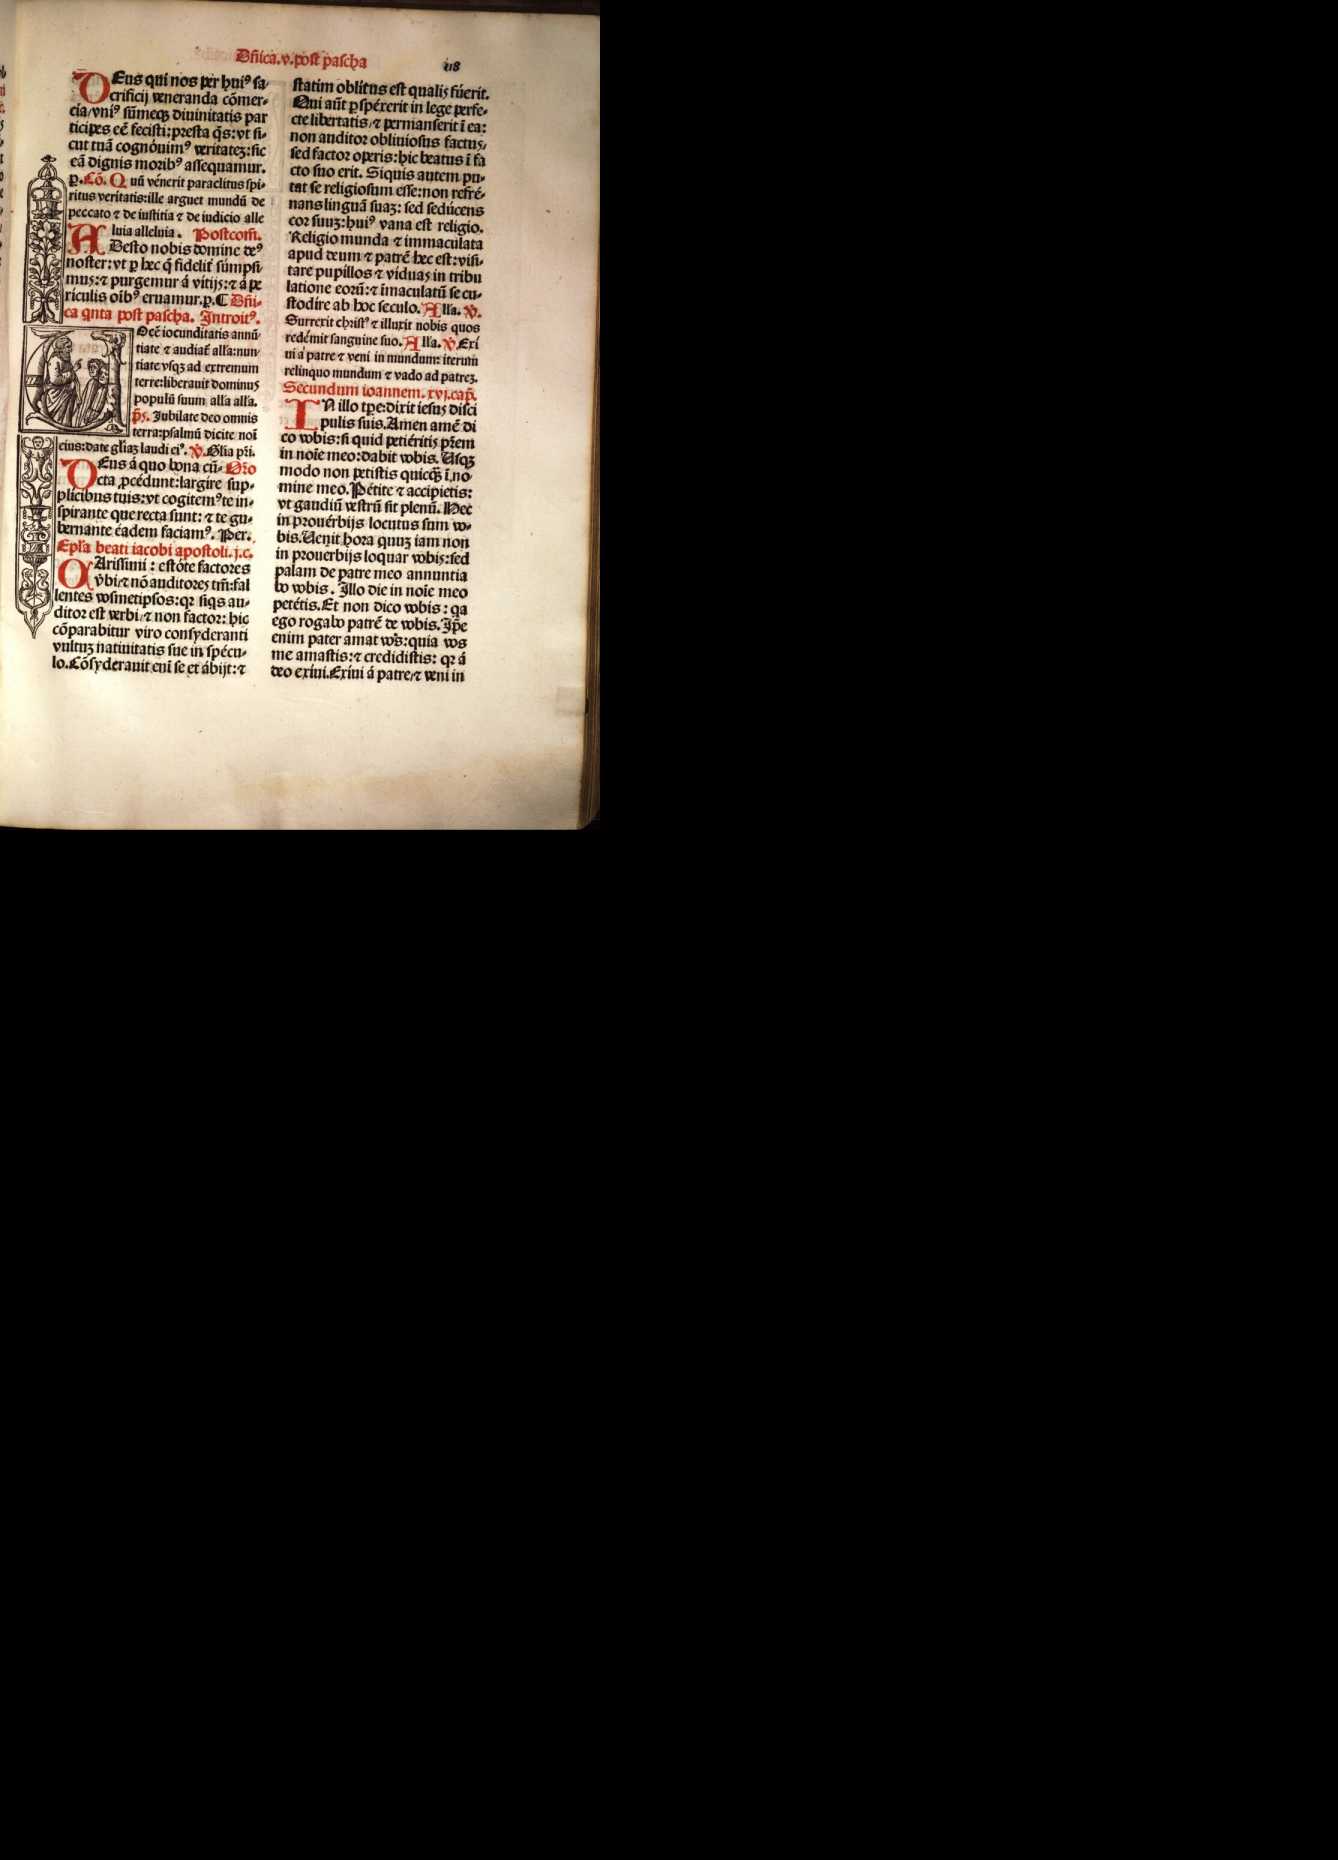 Dñica.v.post pascha
118
DEus qui nos per huiꝰ sa-
crificij veneranda cõmer-
cia/vniꝰ sũmeqꝫ diuinitatis par
ticipes eẽ fecisti:presta q̃s:vt si-
cut tuã cognóuimꝰ veritateꝫ:sic
eã dignis moribꝰ assequamur.
p.Cõ. Quũ vénerit paraclitus spi-
ritus veritatis:ille arguet mundũ de
peccato ⁊ de iustitia ⁊ de iudicio alle
luia alleluia. Postcom̃.
ADesto nobis domine deꝰ
noster:vt ꝑ hec q̃ fidelit̃ súmpsi-
muꝫ:⁊ purgemur á vitijs:⁊ á pe
riculis oĩbꝰ eruamur.p.¶ Dñi-
ca qnta post pascha. Introitꝰ.
Ocẽ iocunditatis annũ-
tiate ⁊ audiat̃ alľa:nun-
tiate vsqꝫ ad extremum
terre:liberauit dominuꝫ
populũ suum alľa alľa.
p̃s. Jubilate deo omnis
terra:psalmũ dicite noĩ
eius:date gľiaꝫ laudi eiꝰ. ℣.Gľia pr̃i.
DEus á quo bona cũ- Or̃o
cta ꝓcédunt:largire sup-
plicibus tuis:vt cogitemꝰ te in-
spirante que recta sunt: ⁊ te gu-
bernante éadem faciamꝰ. Per.
Epľa beati iacobi apostoli.j.c.
CArissimi : estóte factores
v̓bi/⁊ nõ auditoreꝫ tm̃:fal
lentes vosmetipsos:qꝛ siqs au-
ditor est verbi/⁊ non factor: hic
cõparabitur viro consyderanti
vultuꝫ natiuitatis sue in spécu-
lo.Cõsyderauit eni̓ se et ábijt:⁊
statim oblitus est qualiꝫ fúerit.
Qui aũt ꝑspéxerit in lege perfe-
cte libertatis/⁊ permanserit ĩ ea:
non auditor obliuiosus factuꝫ/
sed factor operis:hic beatus ĩ fa
cto suo erit. Siquis autem pu-
tat se religiosum esse:non refré-
nans linguã suaꝫ: sed sedúcens
cor suuꝫ:huiꝰ vana est religio.
Religio munda ⁊ immaculata
apud deum ⁊ patrẽ hec est:visi-
tare pupillos ⁊ viduaꝫ in tribu
latione eorũ:⁊ ĩmaculatũ se cu-
stodire ab hoc seculo. Alľa. ℣.
Surrexit christꝰ ⁊ illuxit nobis quos
redémit sanguine suo. Alľa. ℣.Exí
ui á patre ⁊ veni in mundum: iterum
relinquo mundum ⁊ vado ad patreꝫ.
Secundum ioannem. xvj.cap̃.
IN illo tp̃e:dixit iesus disci
pulis suis.Amen amẽ di
co vobis:si quid petiéritis pr̃em
in noĩe meo:dabit vobis. Usqꝫ
modo non petistis quicqꝫ̃ ĩ no-
mine meo. Pétite ⁊ accipietis:
vt gaudiũ vestrũ sit plenũ. Hec
in prouérbijs locutus sum vo-
bis.Uenit hora quuꝫ iam non
in prouerbijs loquar vobiꝫ:sed
palam de patre meo annuntia
bo vobis. Illo die in noĩe meo
petétis.Et non dico vobis : qa
ego rogabo patrẽ de vobis. Ip̃e
enim pater amat vos:quia vos
me amastis:⁊ credidistis: qꝛ á
deo exiui.Exiui á patre/⁊ veni in